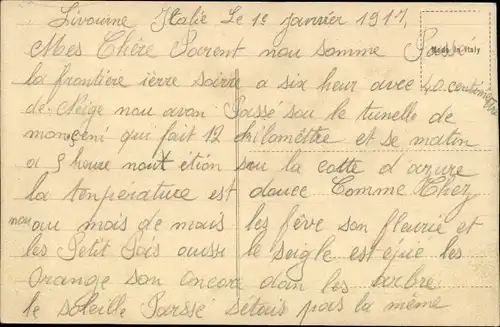 Livourne Italie Le 1e janvier 1917
Made in Italy
Mes Chère Parent nou somme Passé
la frontière ierre soirre a six heur avec 40 centimètre
de Neige nou avon Passé sou le tunelle de
monceni qui fait 12 kilomêttre et se matin
a 9 houre nout etion sou la cotte d'azure
la tenpérature est douce Comme Chez
nou au mois de mais les fêve son fleurie et
les Petit Pois aussi le seigle est épie les
orange son encore dan les arbre
le soleille Parssé sétais pas la même